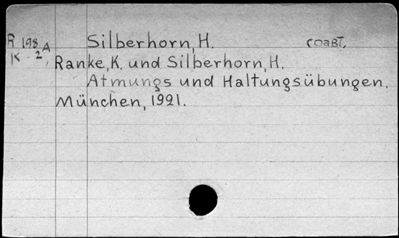 R 198 A Silberhorn, H. соавт.
K - 2, Ranke, K. und Silberhorn, H.
Atmungs und Haltungsübungen.
München, 1921.